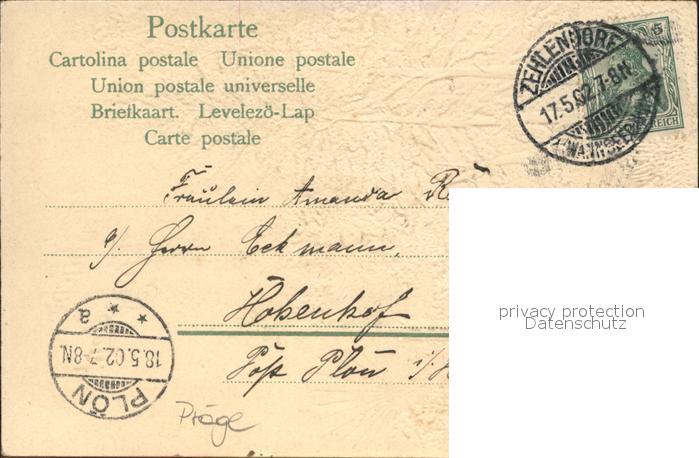 Postkarte
Cartolina postale Unione postale
Union postale universelle
Briefkaart. Levelező-Lap
Carte postale
ZEHLENDORF
17.5.02.7-8N
(WANNSEEBAHN)
5
REICH
Fräulein Amanda
p/ Herrn Eckmann,
Hohenhof
Post Plön i/
a
18.5.02.7-8N.
PLÖN
Präge
privacy protection
Datenschutz